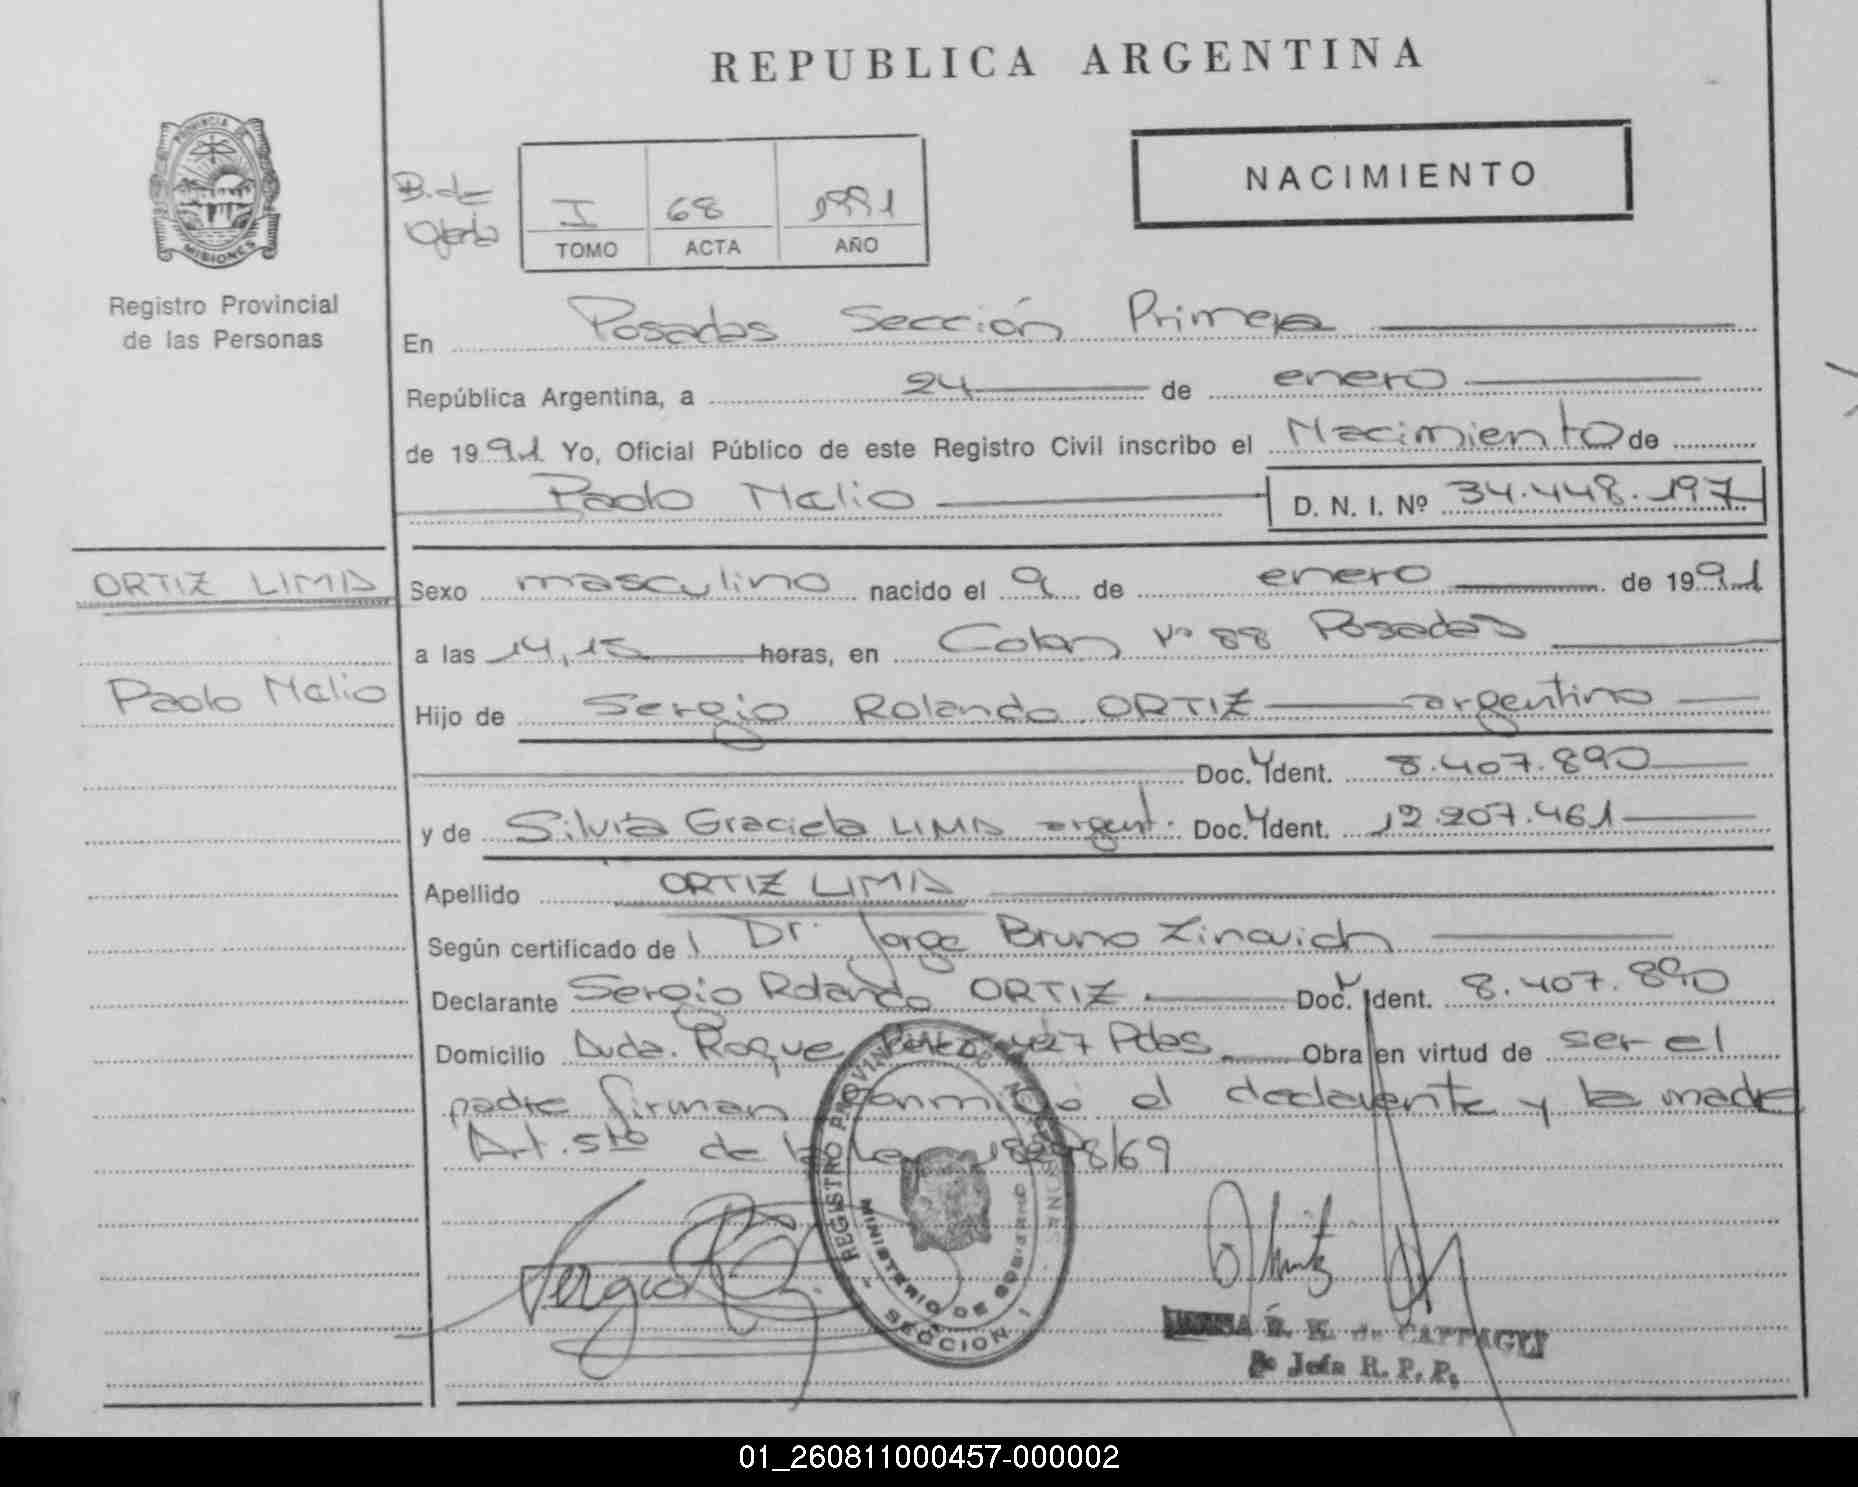 REPUBLICA ARGENTINA
PROVINCIA DE
MISIONES
Registro Provincial
de las Personas
B. de
I 68 1991
TOMO ACTA AÑO
NACIMIENTO
En Posadas Sección Primera
República Argentina, a 24 de enero
de 1991 Yo, Oficial Público de este Registro Civil inscribo el Nacimiento de
Paolo Nalio D. N. I. Nº 34.448.197
ORTIZ LIMA
Paolo Nalio
Sexo masculino nacido el 9 de enero de 1991
a las 14,15 horas, en Colon Nº 88 Posadas
Hijo de Sergio Rolando ORTIZ argentino
Doc. Ident. 8.407.890
y de Silvia Graciela LIMA argent. Doc. Ident. 12.207.461
Apellido ORTIZ LIMA
Según certificado de Dr. Jorge Bruno Zinovich
Declarante Sergio Rolando ORTIZ Doc. Ident. 8.407.890
Domicilio Avda. Roque Perez 427 Pdas Obra en virtud de ser el
padre firman conmigo el declarante y la madre
Art. 5to de la Ley 18248/69
REGISTRO PROVINCIAL DE
MINISTERIO DE GOBIERNO
SECCION 1
Sergio
de
Jefa R. P. P.
01_260811000457-000002